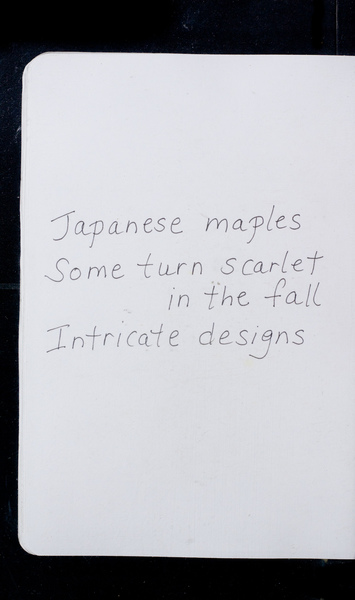 Japanese maples
Some turn scarlet
in the fall
Intricate designs